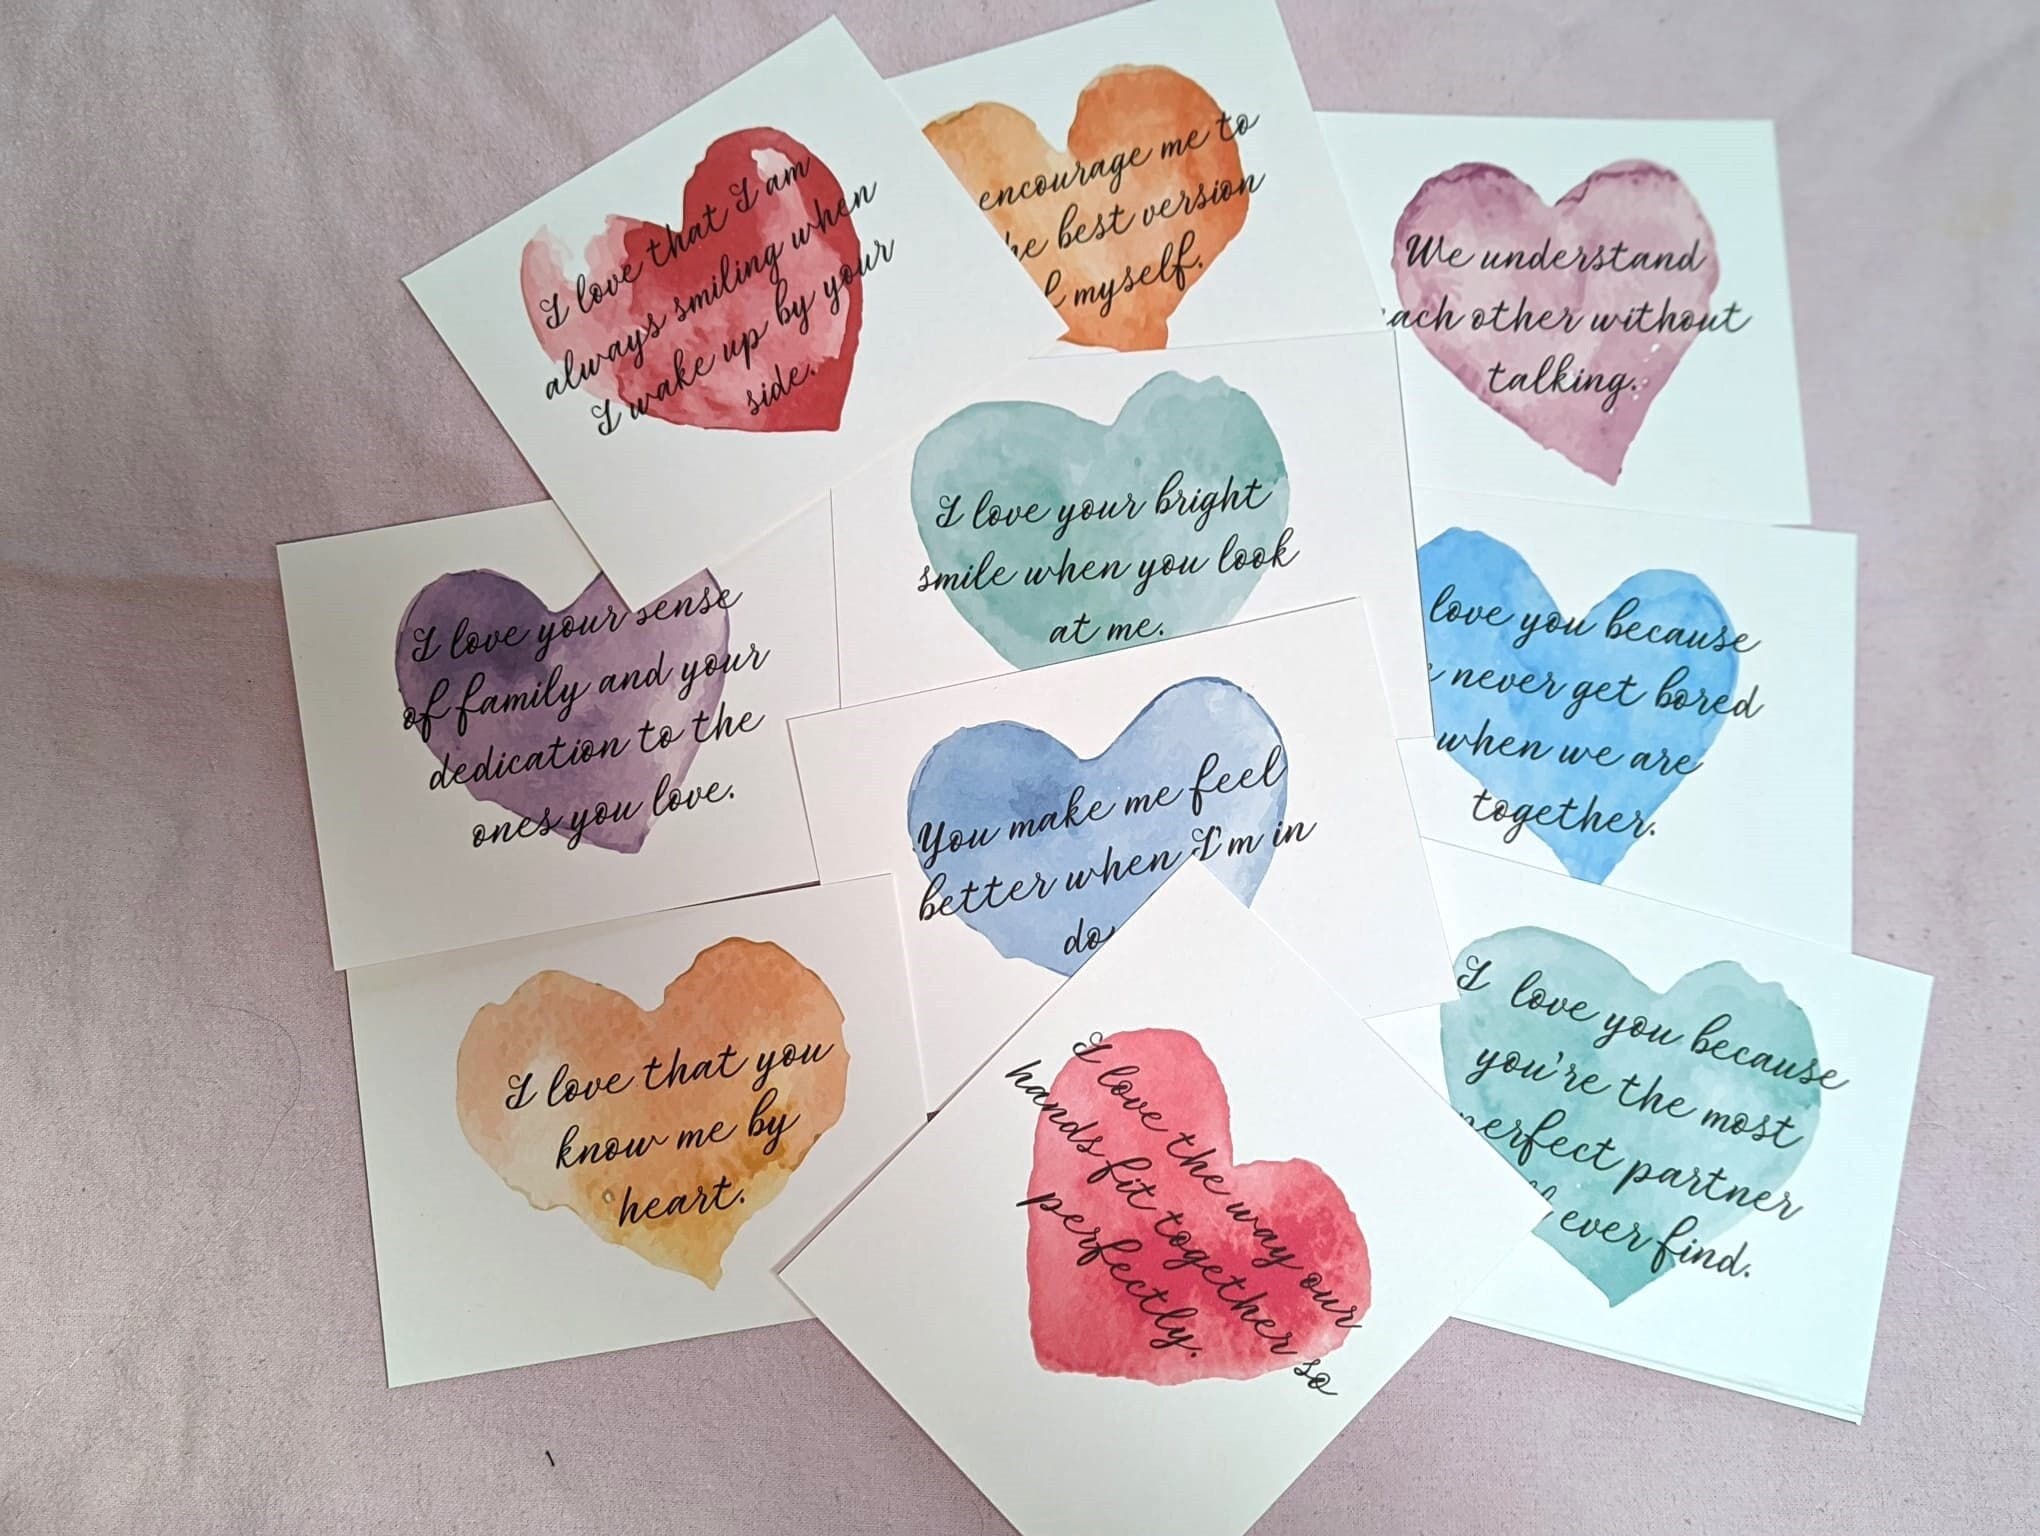 I love that I am
always smiling when
I wake up by your
side.
encourage me to
best version
myself.
We understand
other without
talking.
I love your bright
smile when you look
at me.
I love your sense
of family and your
dedication to the
ones you love.
love you because
never get bored
when we are
together.
You make me feel
better when I'm in
I love that you
know me by
heart.
I love the way our
hands fit together so
perfectly.
I love you because
you're the most
perfect partner
ever find.